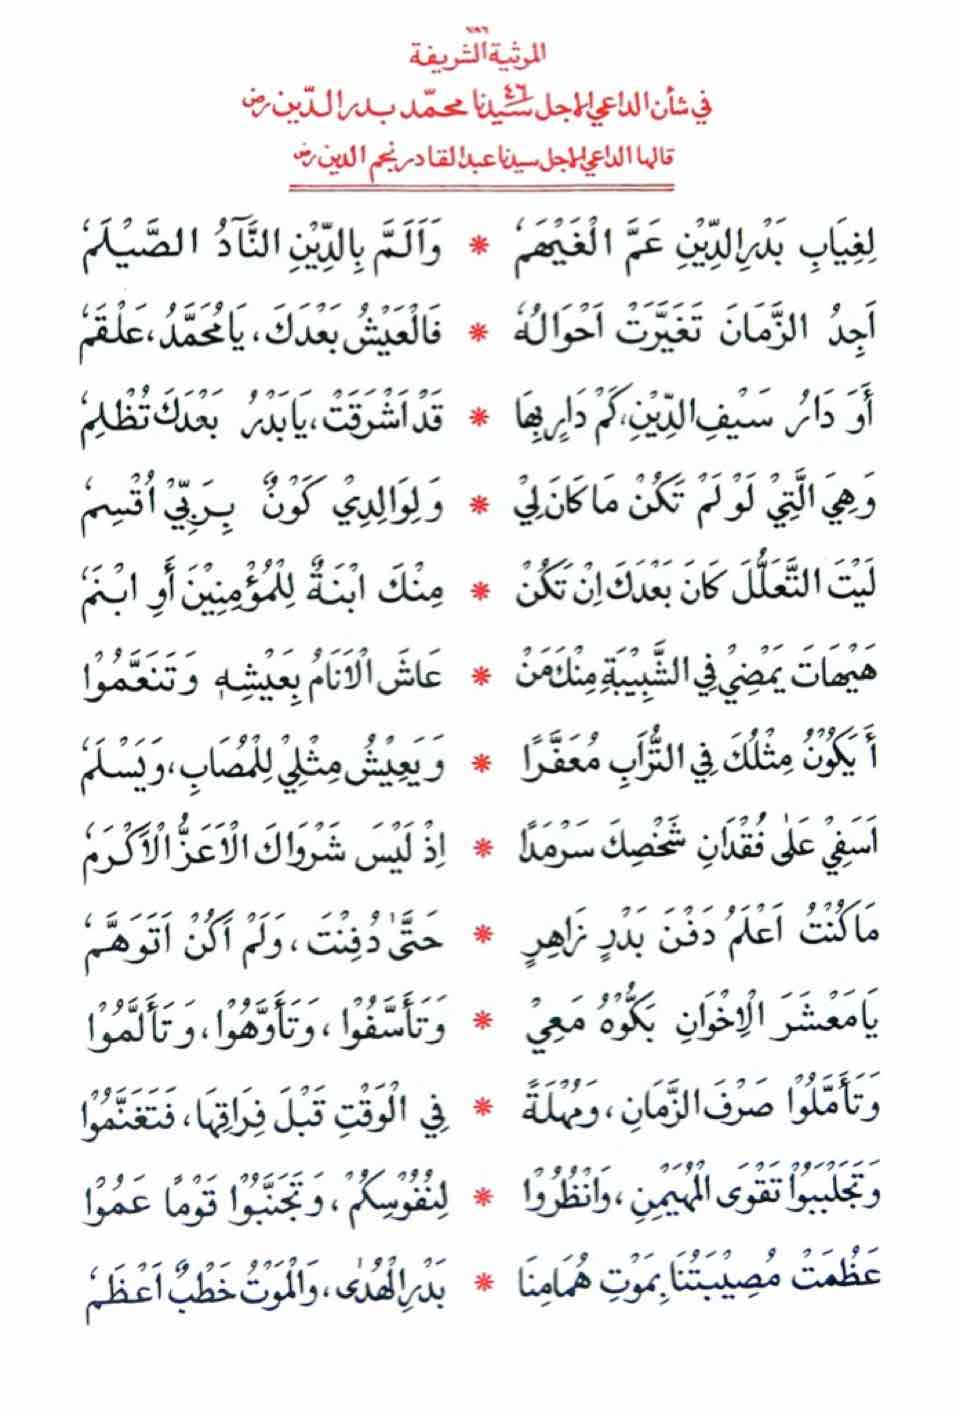 ٧٨٦
المرثية الشريفة
في شأن الداعي الاجل ٤٦ سيدنا محمّد بدر الدّين رض
قالها الداعي الاجل سيدنا عبد القادر نجم الدين رض
لِغِيَابِ بَدْرِ الدِّيْنِ عَمَّ الْغَيْهَمُ * وَاَلَمَّ بِالدِّيْنِ النَّآدُ الصَّيْلَمُ
اَجِدُ الزَّمَانَ تَغَيَّرَتْ اَحْوَالُهُ * فَالْعَيْشُ بَعْدَكَ، يَا مُحَمَّدُ، عَلْقَمُ
أَوَ دَارُ سَيْفِ الدِّيْنِ، كَمْ دَارٍ بِهَا * قَدْ اَشْرَقَتْ، يَا بَدْرُ بَعْدَكَ تُظْلِمُ
وَهِيَ الَّتِيْ لَوْ لَمْ تَكُنْ مَا كَانَ لِيْ * وَلِوَالِدِيْ كَوْنٌ بِرَبِّيْ اُقْسِمُ
لَيْتَ التَّعَلُّلَ كَانَ بَعْدَكَ اِنْ تَكُنْ * مِنْكَ ابْنَةٌ لِلْمُؤْمِنِيْنَ أَوِ ابْنَمُ
هَيْهَاتَ يَمْضِيْ فِي الشَّبِيْبَةِ مِنْكَ مَنْ * عَاشَ الْاَنَامُ بِعَيْشِهٖ وَتَنَعَّمُوْا
أَيَكُوْنُ مِثْلُكَ فِي التُّرَابِ مُعَفَّرًا * وَيَعِيْشُ مِثْلِيْ لِلْمُصَابِ، وَيَسْلَمُ
اَسَفِيْ عَلٰى فُقْدَانِ شَخْصِكَ سَرْمَدًا * اِذْ لَيْسَ شَرْوَاكَ الْاَعَزُّ الْاَكْرَمُ
مَا كُنْتُ اَعْلَمُ دَفْنَ بَدْرٍ زَاهِرٍ * حَتّٰى دُفِنْتَ، وَلَمْ اَكُنْ اَتَوَهَّمُ
يَا مَعْشَرَ الْاِخْوَانِ بَكُّوْهُ مَعِيْ * وَتَأَسَّفُوْا، وَتَأَوَّهُوْا، وَتَأَلَّمُوْا
وَتَأَمَّلُوْا صَرْفَ الزَّمَانِ، وَمُهْلَةً * فِي الْوَقْتِ قَبْلَ فِرَاقِهَا، فَتَغَنَّمُوْا
وَتَجَلْبَبُوْا تَقْوَى الْمُهَيْمِنِ، وَانْظُرُوْا * لِنُفُوْسِكُمْ، وَتَجَنَّبُوْا قَوْمًا عَمُوْا
عَظُمَتْ مُصِيْبَتُنَا بِمَوْتِ هُمَامِنَا * بَدْرِ الْهُدٰى، وَالْمَوْتُ خَطْبٌ اَعْظَمُ